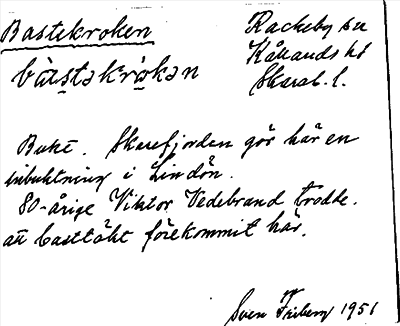 Bastekroken
Rackeby sn
Kållands hd
Skarab. l.
bàstakròkan
Bukt. Skarefjorden gör här en
inbuktning i Lindön.
80-årige Viktor Vedebrand trodde.
att basttäkt förekommit här.
Sven Friberg 1951